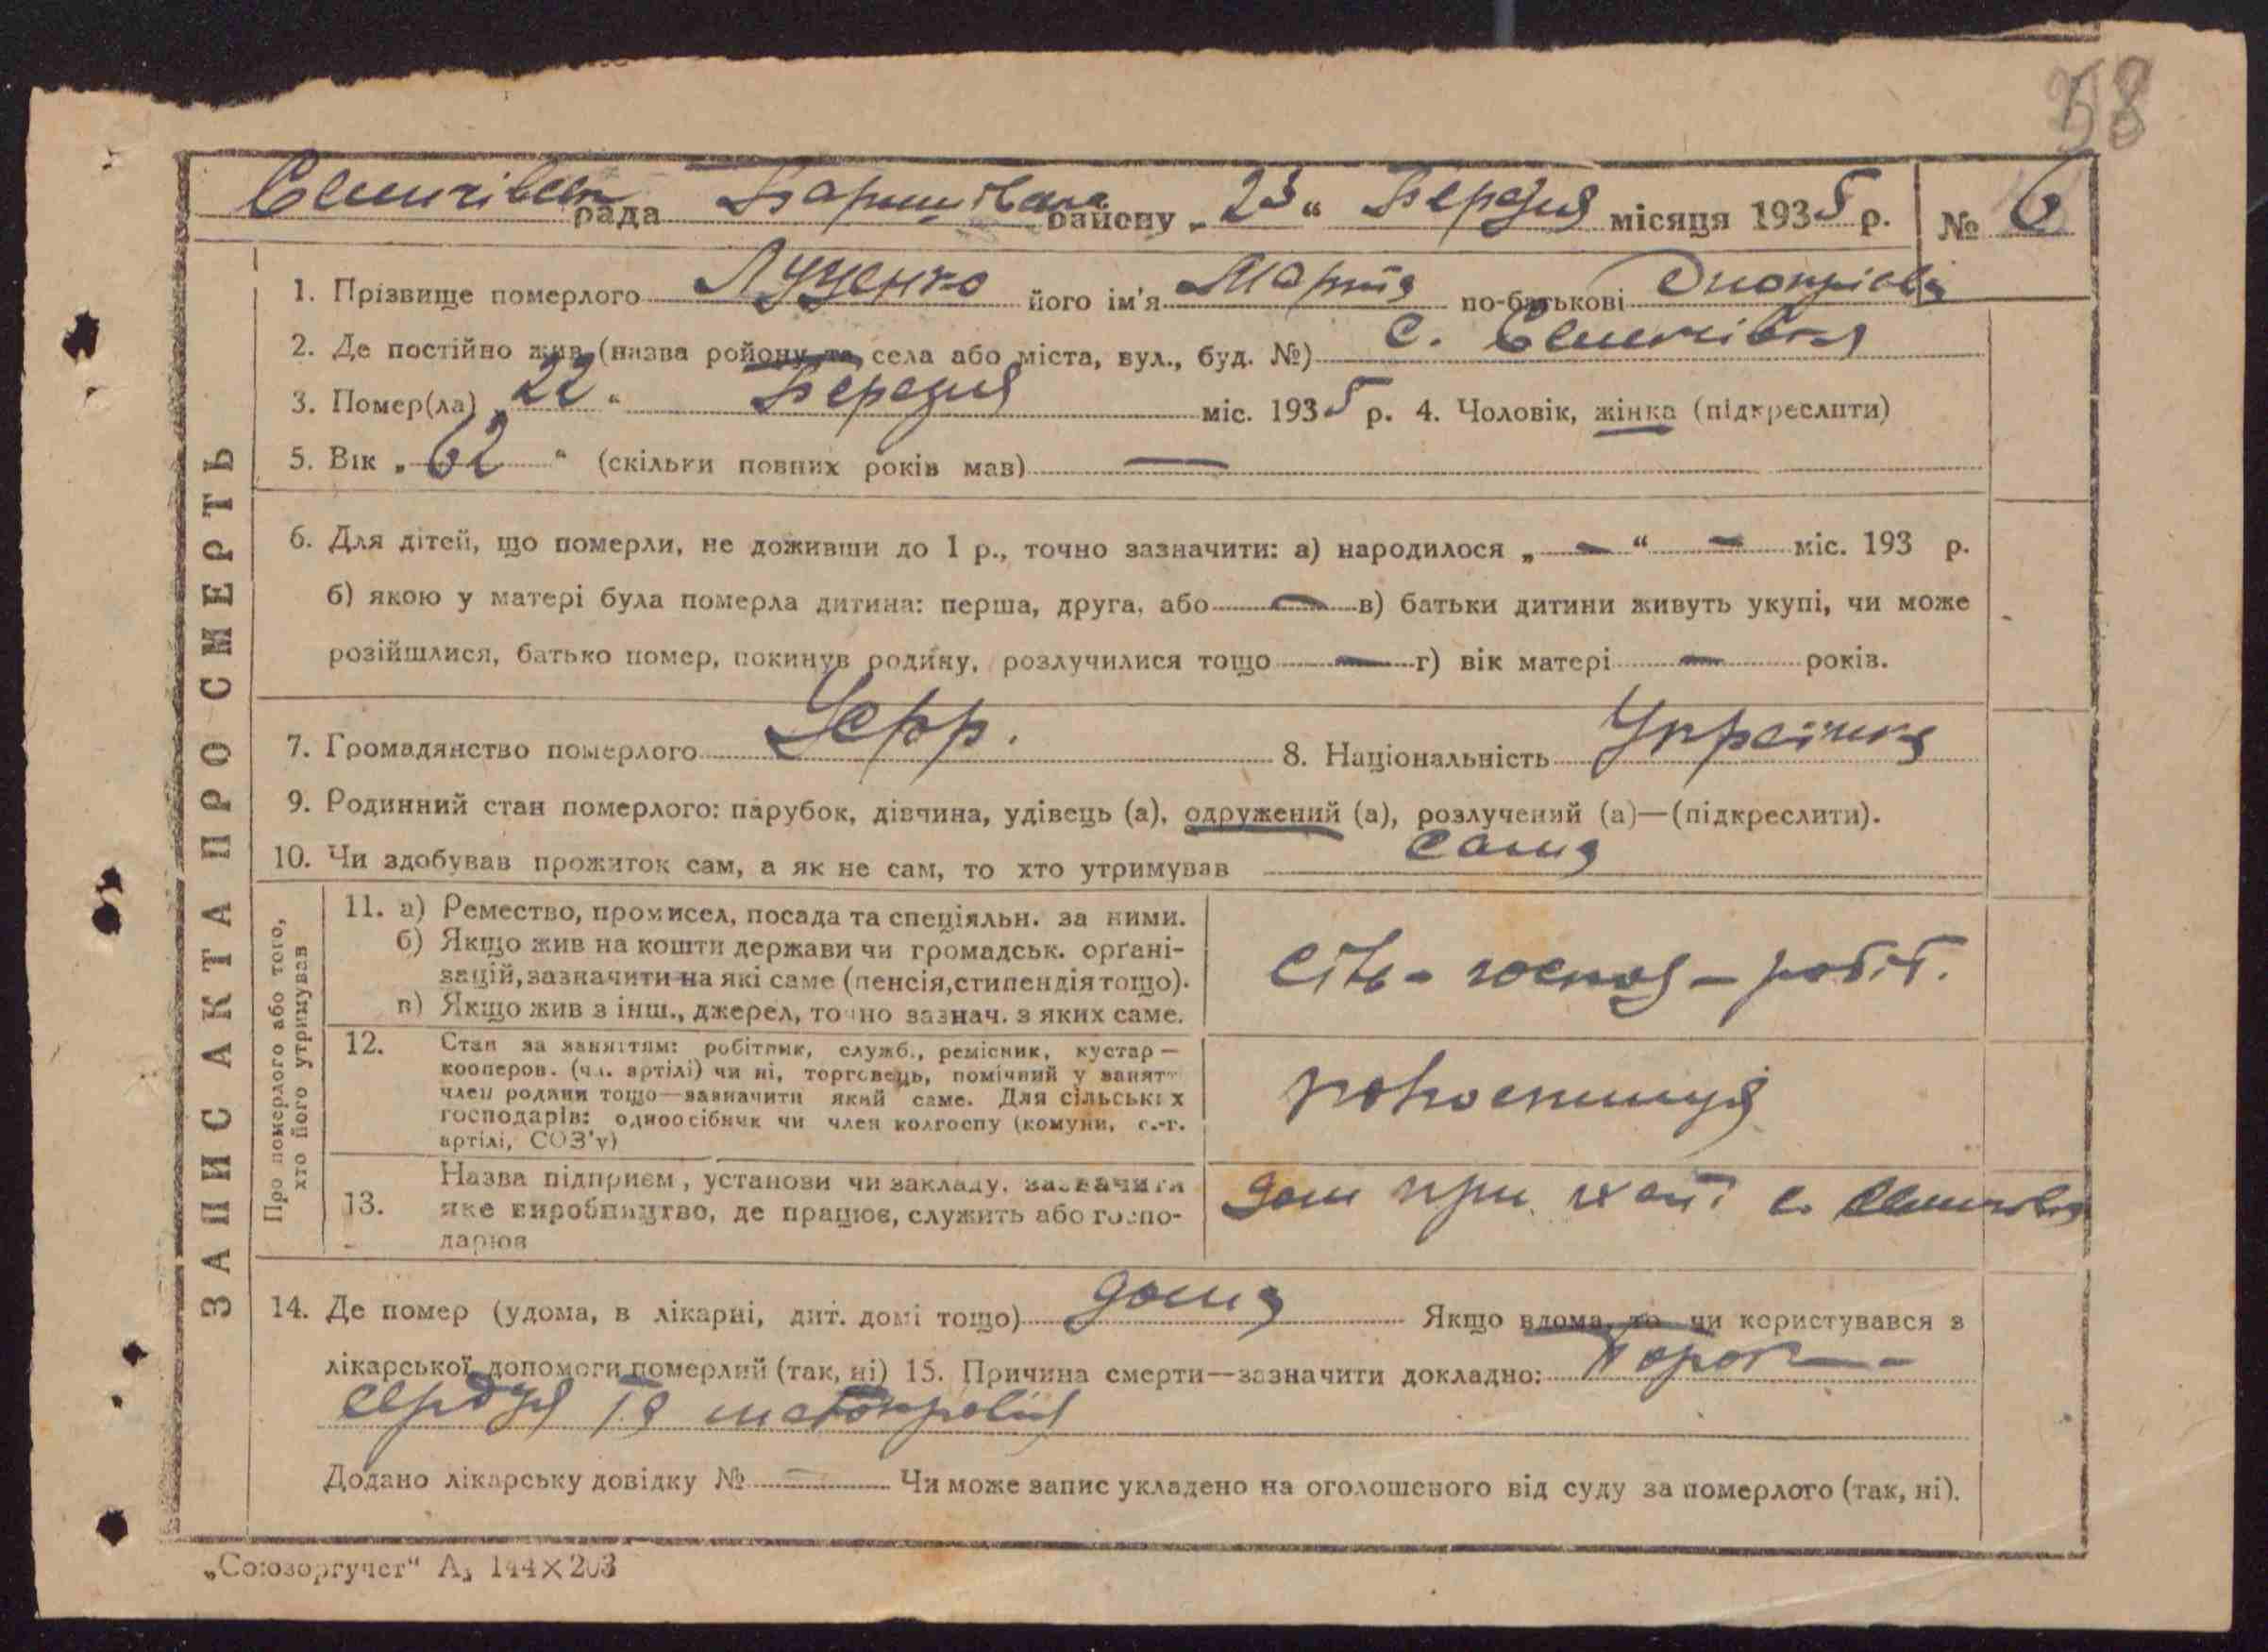 58
рада Баришівськ району „ 23 “ Березня місяця 1935 р. № 6
1. Прізвище померлого Луценко його ім'я Марта по-батькові
2. Де постійно жив (назва ройону та села або міста, вул., буд. №) с.
3. Помер(ла) „ 22 “ Березня міс. 1935 р. 4. Чоловік, жінка (підкреслити)
5. Вік „ 62 “ (скільки повних років мав) —
6. Для дітей, що померли, не доживши до 1 р., точно зазначити: а) народилося „ — “ — міс. 193 р.
б) якою у матері була померла дитина: перша, друга, або — в) батьки дитини живуть укупі, чи може
розійшлися, батько помер, покинув родину, розлучилися тощо — г) вік матері — років.
7. Громадянство померлого Усрр. 8. Національність Українка
9. Родинний стан померлого: парубок, дівчина, удівець (а), одружений (а), розлучений (а)—(підкреслити).
10. Чи здобував прожиток сам, а як не сам, то хто утримував сама
ЗАПИС АКТА ПРО СМЕРТЬ
Про померлого або того,
хто його утримував
11. а) Ремество, промисел, посада та спеціяльн. за ними.
б) Якщо жив на кошти держави чи громадськ. орґані-
зацій, зазначити на які саме (пенсія, стипендія тощо).
в) Якщо жив з інш., джерел, точно зазнач. з яких саме.
сіль - господ - робіт.
12. Стан за заняттям: робітник, служб., ремісник, кустар —
кооперов. (чл. артілі) чи ні, торговець, помічний у занятт
член родини тощо—зазначити який саме. Для сільських
господарів: одноосібник чи член колгоспу (комуни, с.-г.
артілі, СОЗ'у)
13. Назва підприєм, установи чи закладу, зазначити
яке виробництво, де працює, служить або госпо-
дарює
дом при хаті с.
14. Де помер (удома, в лікарні, дит. домі тощо) дома Якщо вдома, то чи користувався з
лікарської допомоги померлий (так, ні) 15. Причина смерти—зазначити докладно: Порок
сердця та
Додано лікарську довідку № — Чи може запис укладено на оголошеного від суду за померлого (так, ні).
„Союзоргучет“ А₅ 144×203